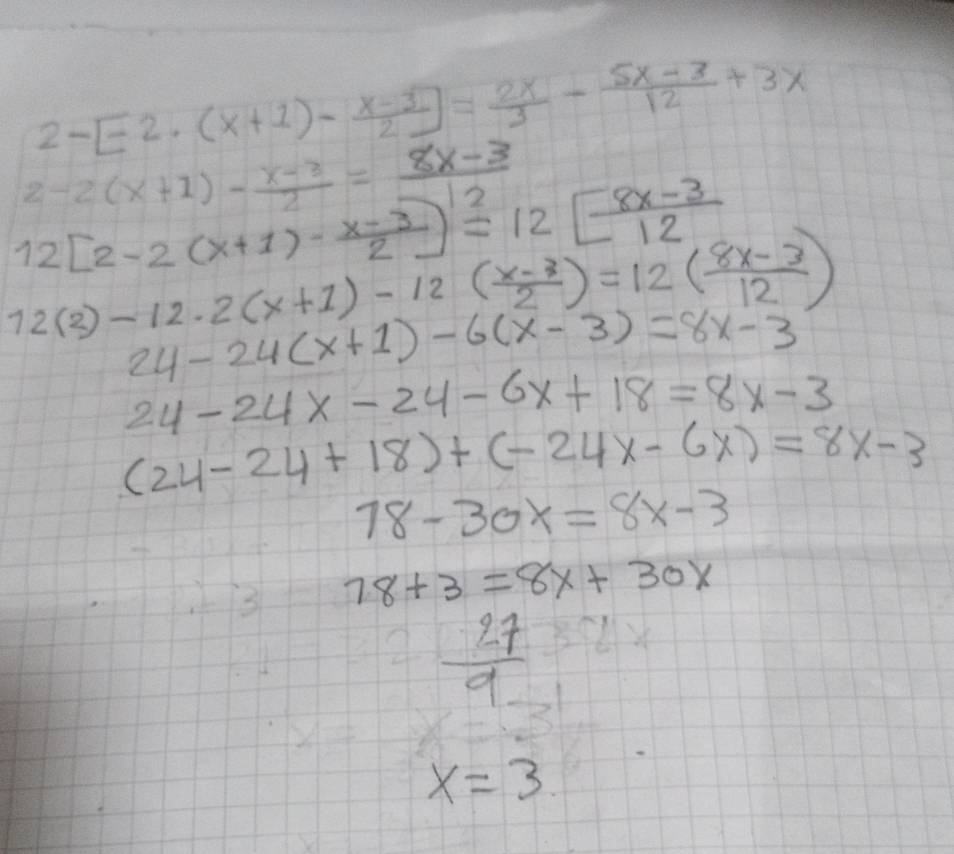 2-[-2·(x+1)-\frac{x-3}{2}]=\frac{2x}{3}-\frac{5x-3}{12}+3x
2-2(x+1)-\frac{x-3}{2}=\frac{8x-3}{12}
12[2-2(x+1)-\frac{x-3}{2}]=12[\frac{8x-3}{12}
12(2)-12.2(x+1)-12(\frac{x-3}{2})=12(\frac{8x-3}{12})
24-24(x+1)-6(x-3)=8x-3
24-24x-24-6x+18=8x-3
(24-24+18)+(-24x-6x)=8x-3
18-30x=8x-3
18+3=8x+30x
\frac{27}{9}
x=3